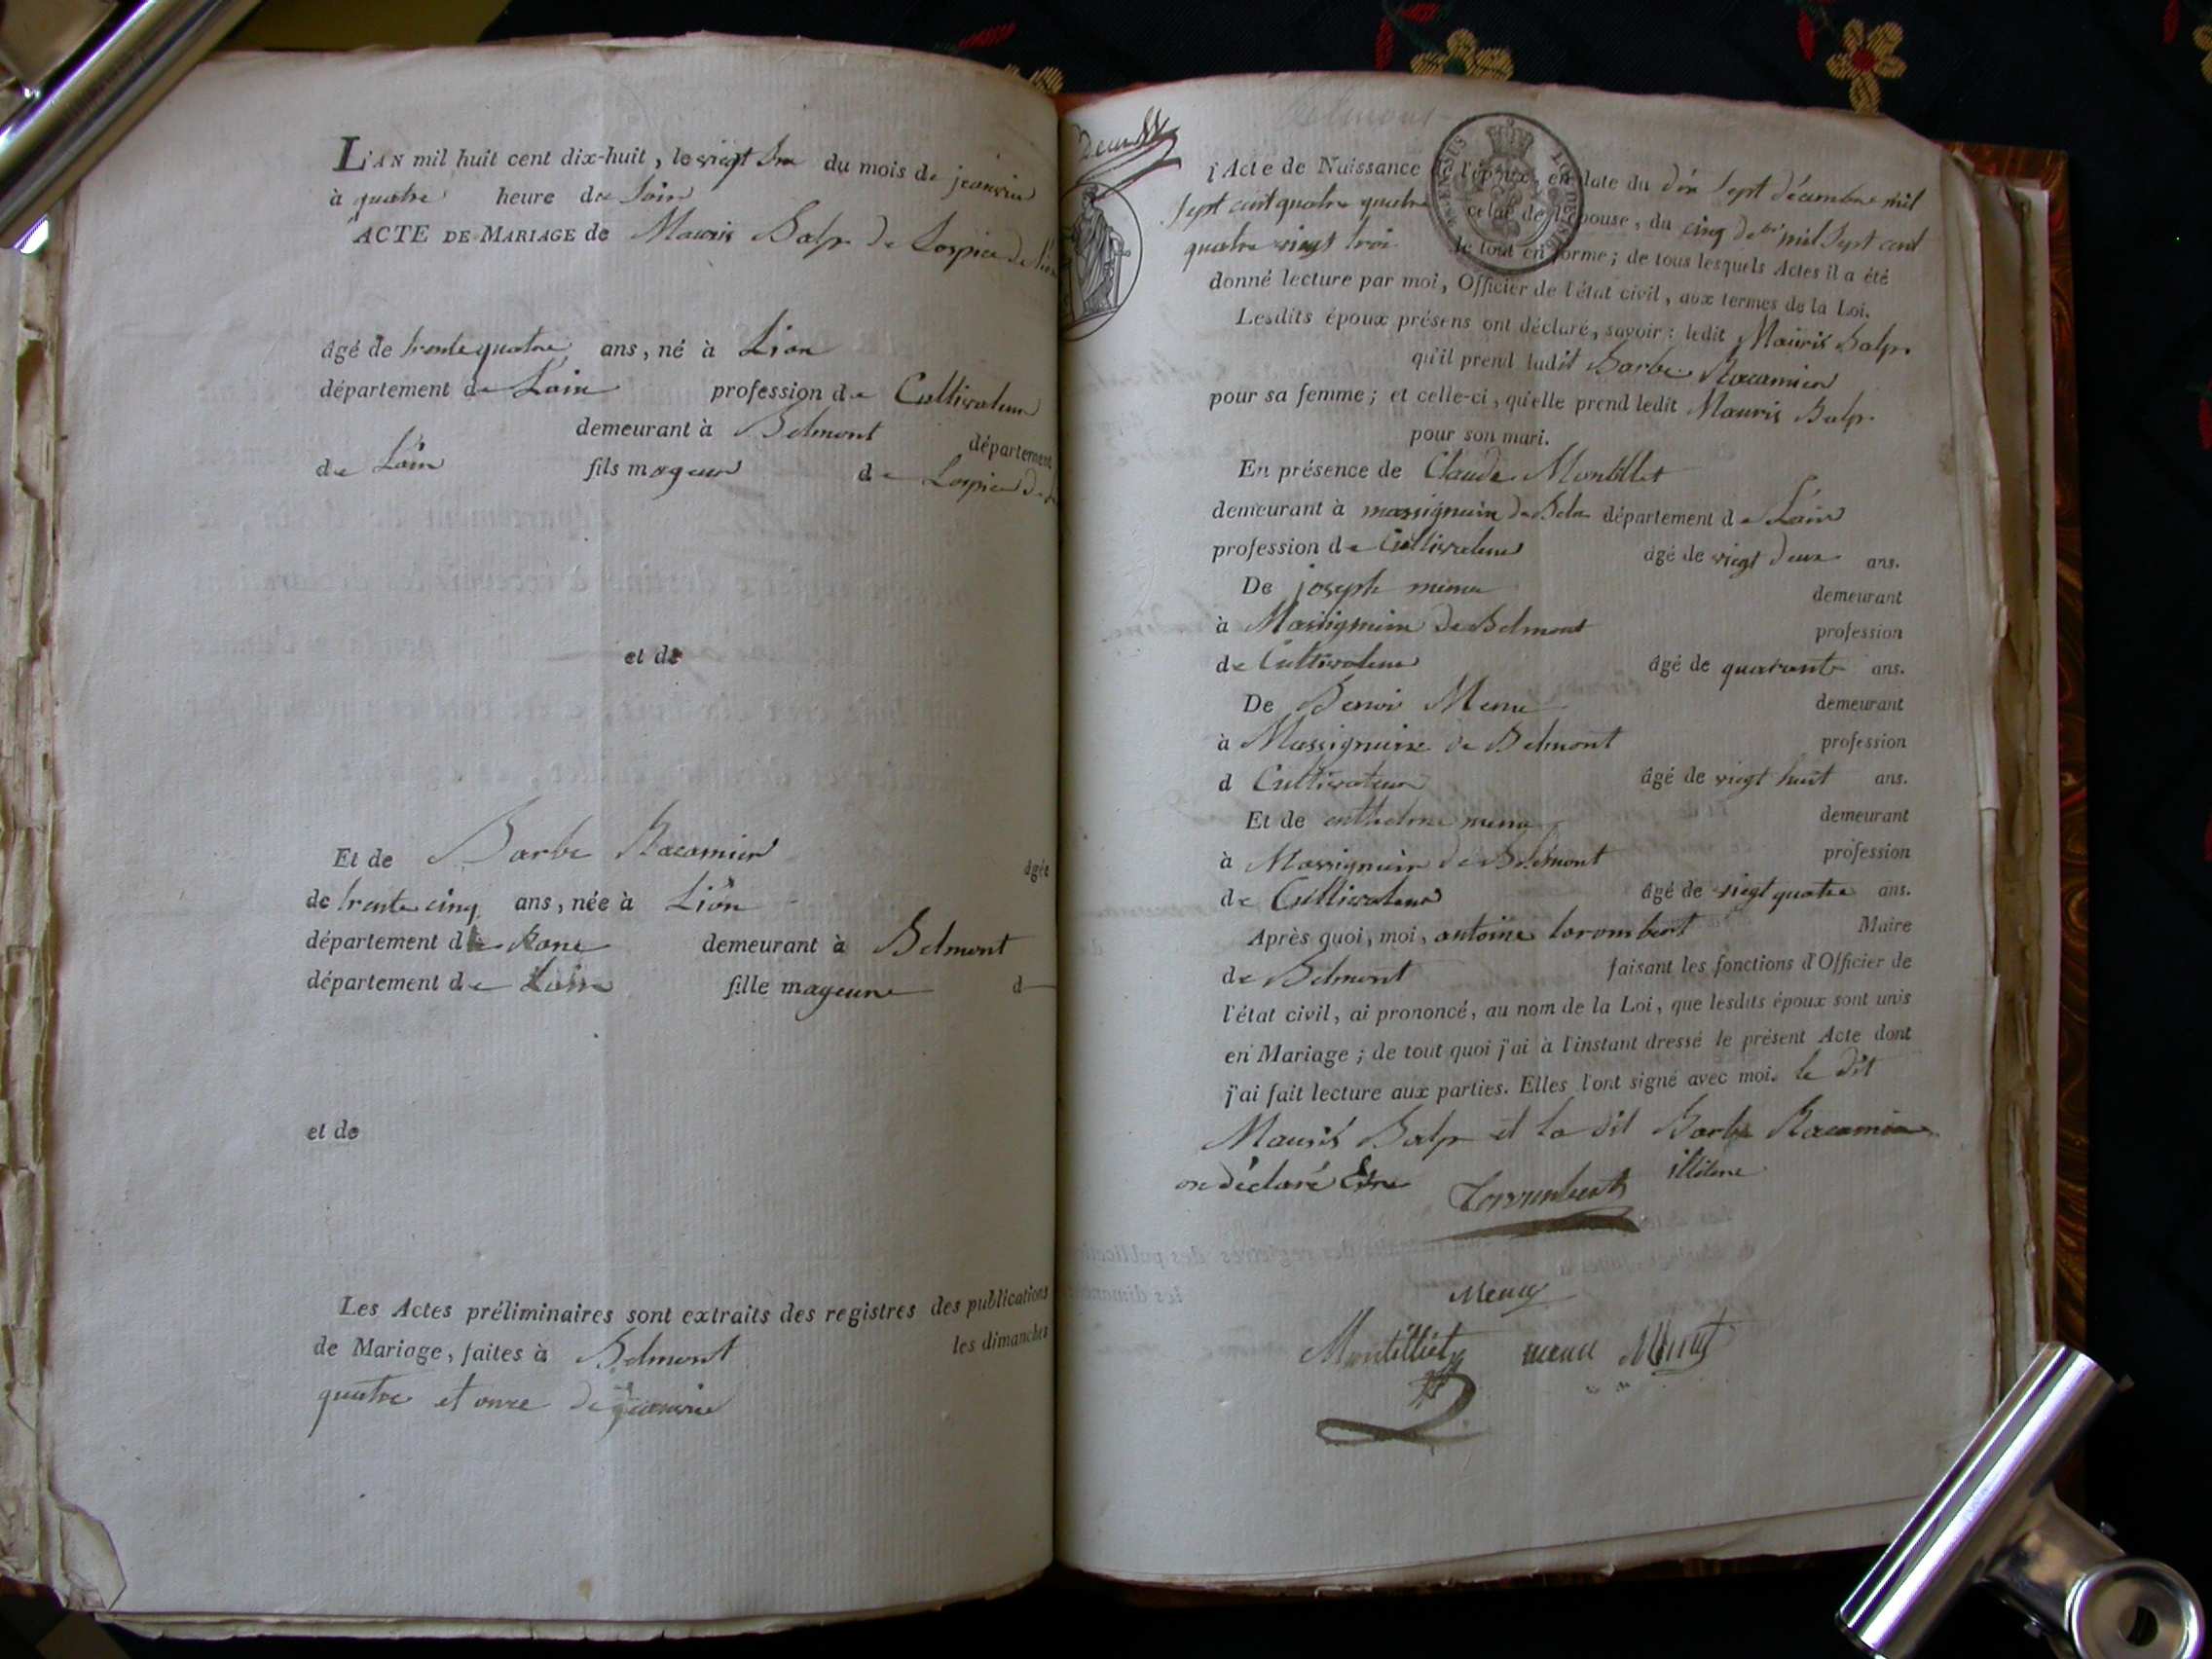 L'AN mil huit cent dix-huit, le viegt un du mois de jeanvie
à quatre heure du Soir
ACTE DE MARIAGE de Mauris Balp de Lospice de
âgé de trente quatre ans, né à Lion
département de Lain profession de Cultivateur
demeurant à Belmont département
de Lain fils mageur de Lospice de
et de
Et de Barbe Racamier âgée
de trente cinq ans, née à Lion
département de Rone demeurant à Belmont
département de Lain fille mageure d
et de
Les Actes préliminaires sont extraits des registres des publications
de Mariage, faites à Belmont les dimanches
quatre et onze de jeanvie
Belmont
l'Acte de Naissance de l'époux, en date du dix Sept décembre mil
Sept cent quatre quatre celui de l'épouse, du cinq de mil Sept cent
quatre viegt troi le tout en forme; de tous lesquels Actes il a été
donné lecture par moi, Officier de l'état civil, aux termes de la Loi.
Lesdits époux présens ont déclaré, savoir: ledit Mauris Balp
qu'il prend ladit Barbe Racamier
pour sa femme; et celle-ci, qu'elle prend ledit Mauris Balp
pour son mari.
En présence de Claude Montillet
demeurant à massignieu de Bel département de Lain
profession de Cultivateur âgé de viegt deux ans.
De joseph menu demeurant
à Massignieu de Belmont profession
de Cultivateur âgé de quarante ans.
De Benoi Menu demeurant
à Massignieu de Belmont profession
d Cultivateur âgé de viegt huit ans.
Et de anthelme menu demeurant
à Massignieu de Belmont profession
de Cultivateur âgé de viegt quatre ans.
Après quoi, moi, antoine torombert Maire
de Belmont faisant les fonctions d'Officier de
l'état civil, ai prononcé, au nom de la Loi, que lesdits époux sont unis
en Mariage; de tout quoi j'ai à l'instant dressé le présent Acte dont
j'ai fait lecture aux parties. Elles l'ont signé avec moi. le dit
Mauris Balp et la dit Barbe Racamier
on déclaré Etre illitere
Torrombert
Menu
Montilliet menu Menu